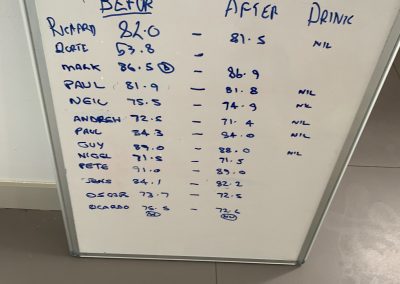 BEFOR AFTER DRINK
RICHARD 82.0 - 81.5 NIL
DORTE 53.8 -
MARK 86.5 - 86.9
PAUL 81.9 - 81.8 NIL
NEIL 75.5 - 74.9 NIL
ANDREW 72.5 - 71.4 NIL
PAUL 84.3 - 84.0 NIL
GUY 89.0 - 88.0 NIL
NIGEL 71.5 - 71.5
PETE 91.0 - 89.0
JENS 84.1 - 82.2
OSCAR 73.7 - 72.5
RICARDO 76.5 - 72.6